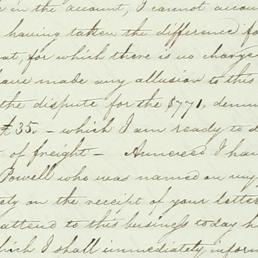 in the account, I cannot accou
having taken the difference fo
at, for which there is no charge
have made any allusion to this
the dispute for the $771, dem
£35 - which I am ready to d
of freight - Annexed I han
Powell who was named on my
ety on the receipt of your letter
attend to this business today h
hich I shall immediately inform